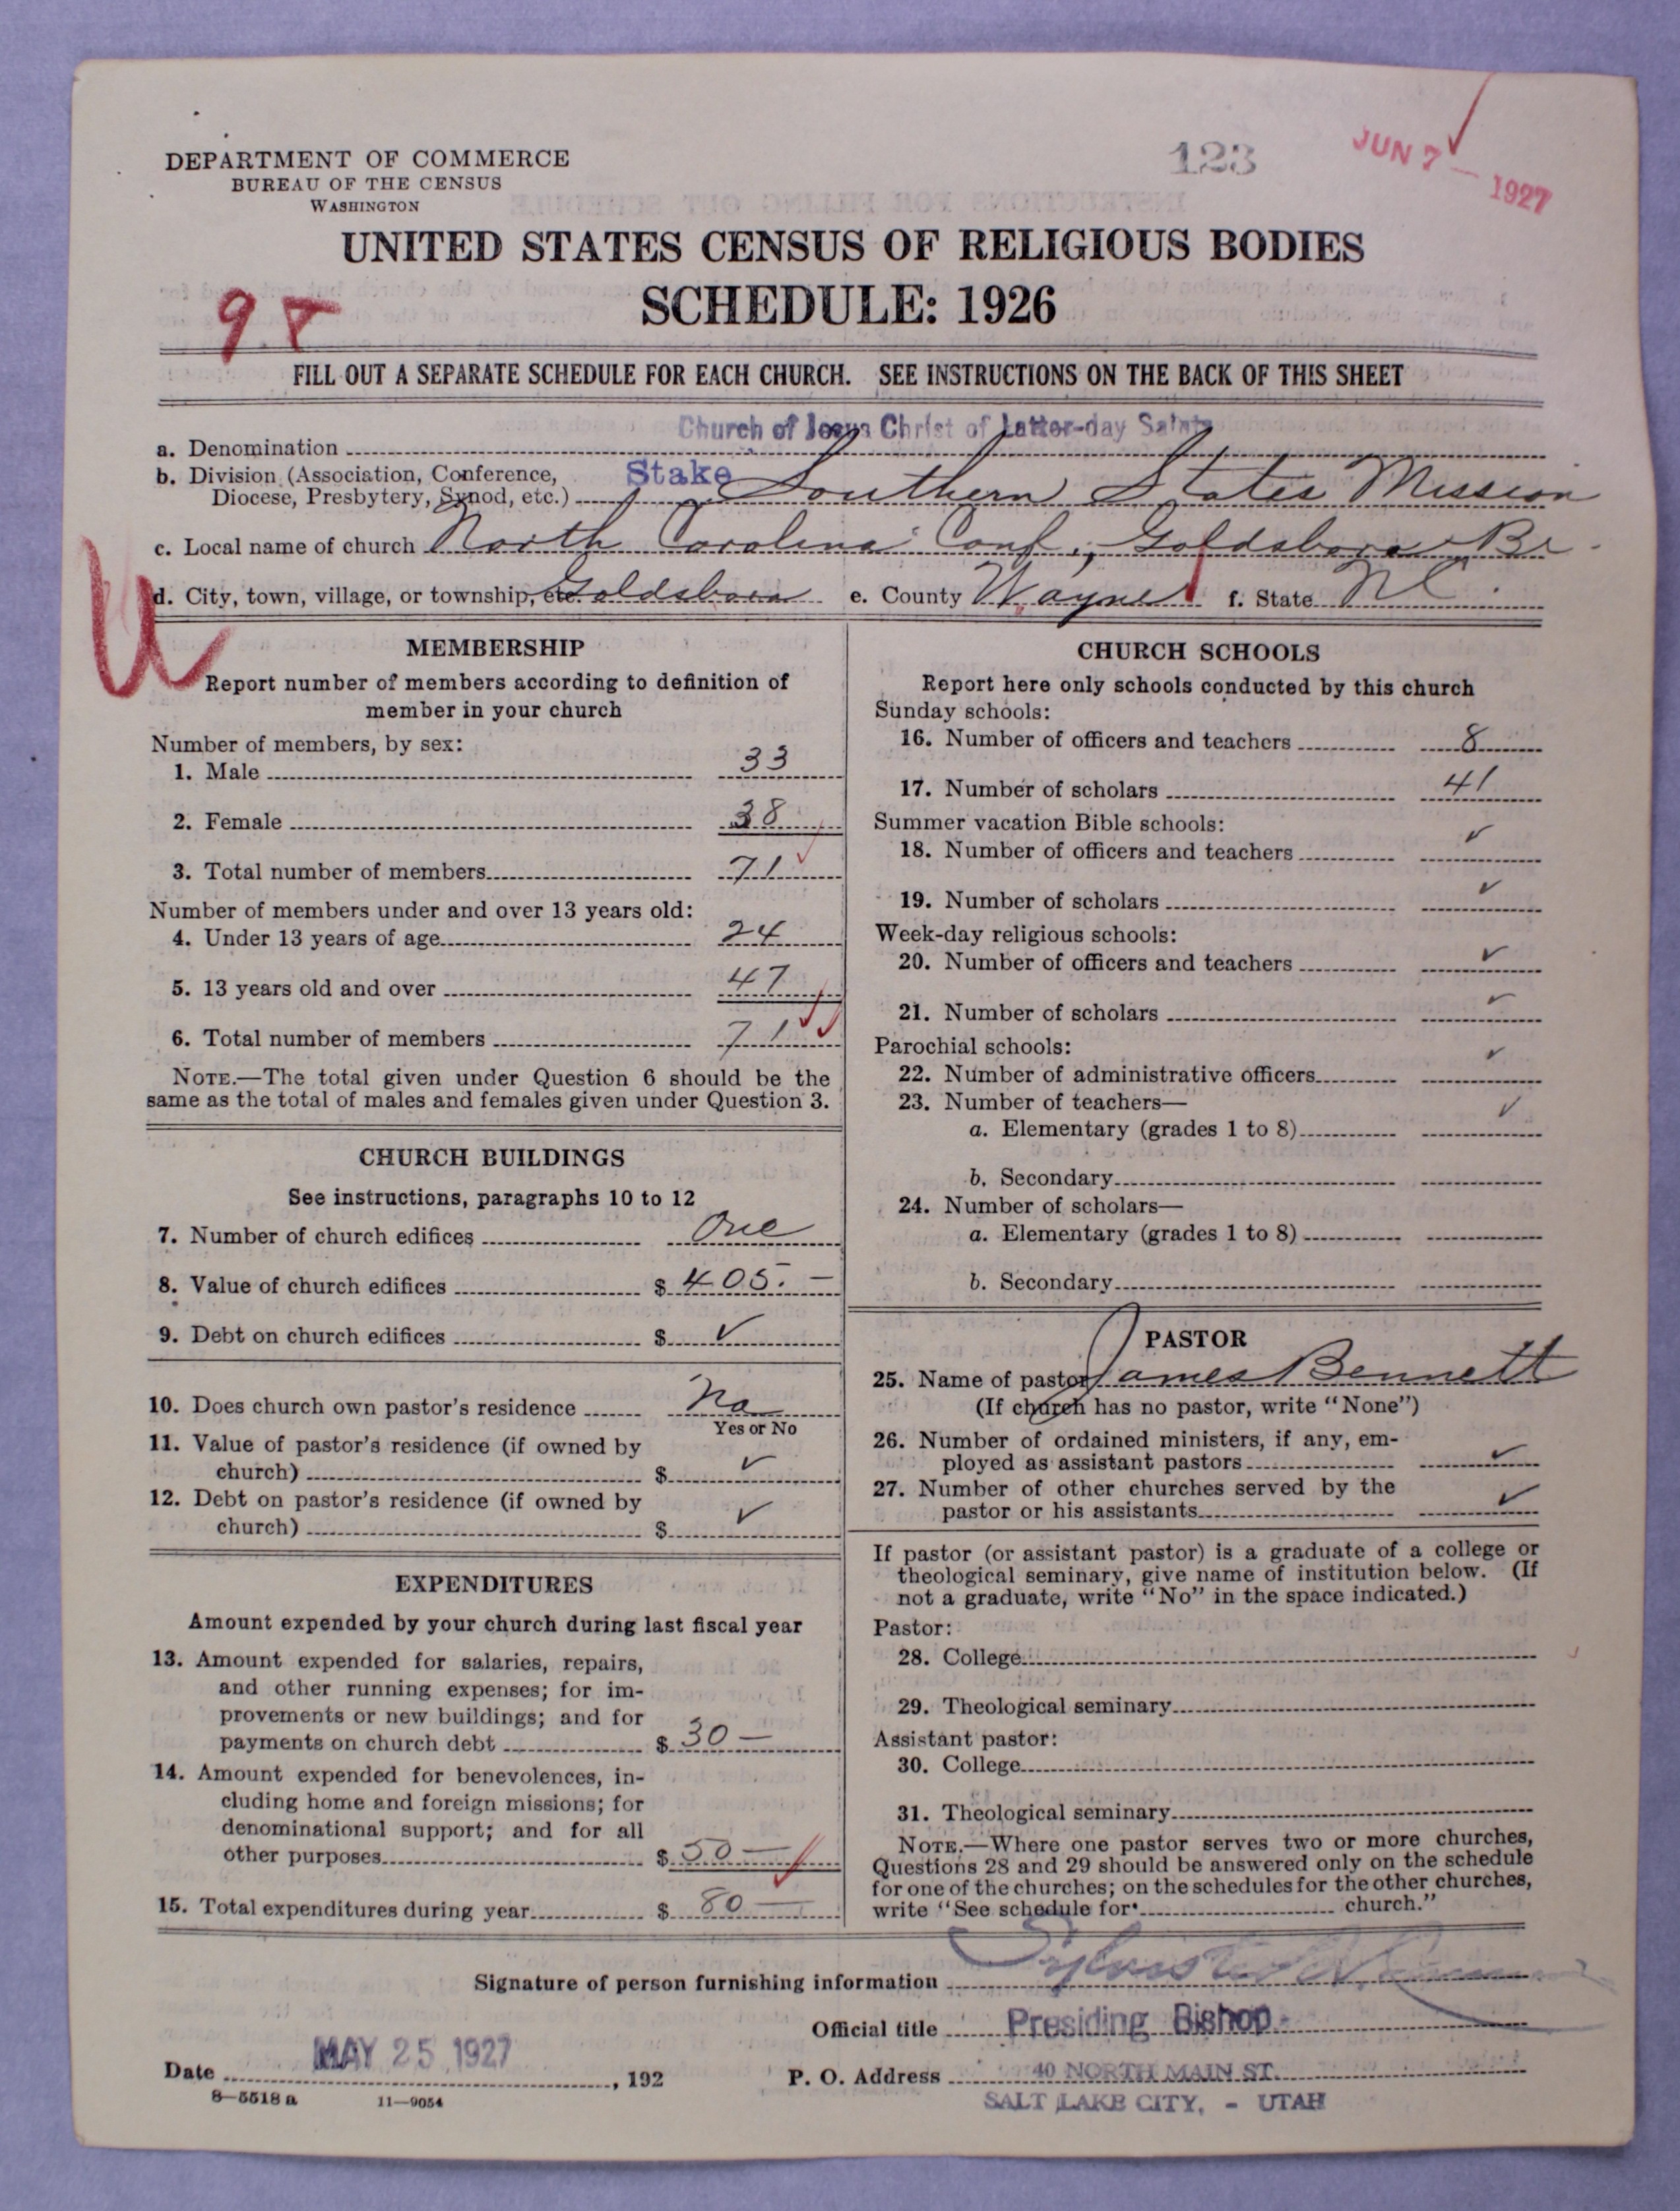 123
JUN 7 - 1927
DEPARTMENT OF COMMERCE
BUREAU OF THE CENSUS
WASHINGTON
UNITED STATES CENSUS OF RELIGIOUS BODIES
SCHEDULE: 1926
98
FILL OUT A SEPARATE SCHEDULE FOR EACH CHURCH. SEE INSTRUCTIONS ON THE BACK OF THIS SHEET
a. Denomination Church of Jesus Christ of Latter-day Saints
b. Division (Association, Conference, Diocese, Presbytery, Synod, etc.) Stake Southern States Mission
c. Local name of church North Carolina Conf., Goldsboro Br.
d. City, town, village, or township, etc. Goldsboro e. County Wayne f. State N C.
U
MEMBERSHIP
Report number of members according to definition of
member in your church
Number of members, by sex:
1. Male 33
2. Female 38
3. Total number of members 71
Number of members under and over 13 years old:
4. Under 13 years of age 24
5. 13 years old and over 47
6. Total number of members 71
NOTE.—The total given under Question 6 should be the
same as the total of males and females given under Question 3.
CHURCH BUILDINGS
See instructions, paragraphs 10 to 12
7. Number of church edifices One
8. Value of church edifices $ 405.—
9. Debt on church edifices $ ✓
10. Does church own pastor's residence No
Yes or No
11. Value of pastor's residence (if owned by
church) $ ✓
12. Debt on pastor's residence (if owned by
church) $ ✓
EXPENDITURES
Amount expended by your church during last fiscal year
13. Amount expended for salaries, repairs,
and other running expenses; for im-
provements or new buildings; and for
payments on church debt $ 30 —
14. Amount expended for benevolences, in-
cluding home and foreign missions; for
denominational support; and for all
other purposes $ 50 —
15. Total expenditures during year $ 80 —
CHURCH SCHOOLS
Report here only schools conducted by this church
Sunday schools:
16. Number of officers and teachers 8
17. Number of scholars 41
Summer vacation Bible schools:
18. Number of officers and teachers ✓
19. Number of scholars ✓
Week-day religious schools:
20. Number of officers and teachers ✓
21. Number of scholars ✓
Parochial schools:
22. Number of administrative officers ✓
23. Number of teachers—
a. Elementary (grades 1 to 8) ✓
b. Secondary
24. Number of scholars—
a. Elementary (grades 1 to 8)
b. Secondary
PASTOR
25. Name of pastor James Bennett
(If church has no pastor, write "None")
26. Number of ordained ministers, if any, em-
ployed as assistant pastors ✓
27. Number of other churches served by the
pastor or his assistants ✓
If pastor (or assistant pastor) is a graduate of a college or
theological seminary, give name of institution below. (If
not a graduate, write "No" in the space indicated.)
Pastor:
28. College
29. Theological seminary
Assistant pastor:
30. College
31. Theological seminary
NOTE.—Where one pastor serves two or more churches,
Questions 28 and 29 should be answered only on the schedule
for one of the churches; on the schedules for the other churches,
write "See schedule for church."
Signature of person furnishing information
Official title Presiding Bishop
Date MAY 25 1927, 192
P. O. Address 40 NORTH MAIN ST.
SALT LAKE CITY, - UTAH
8—5518 a 11—9054